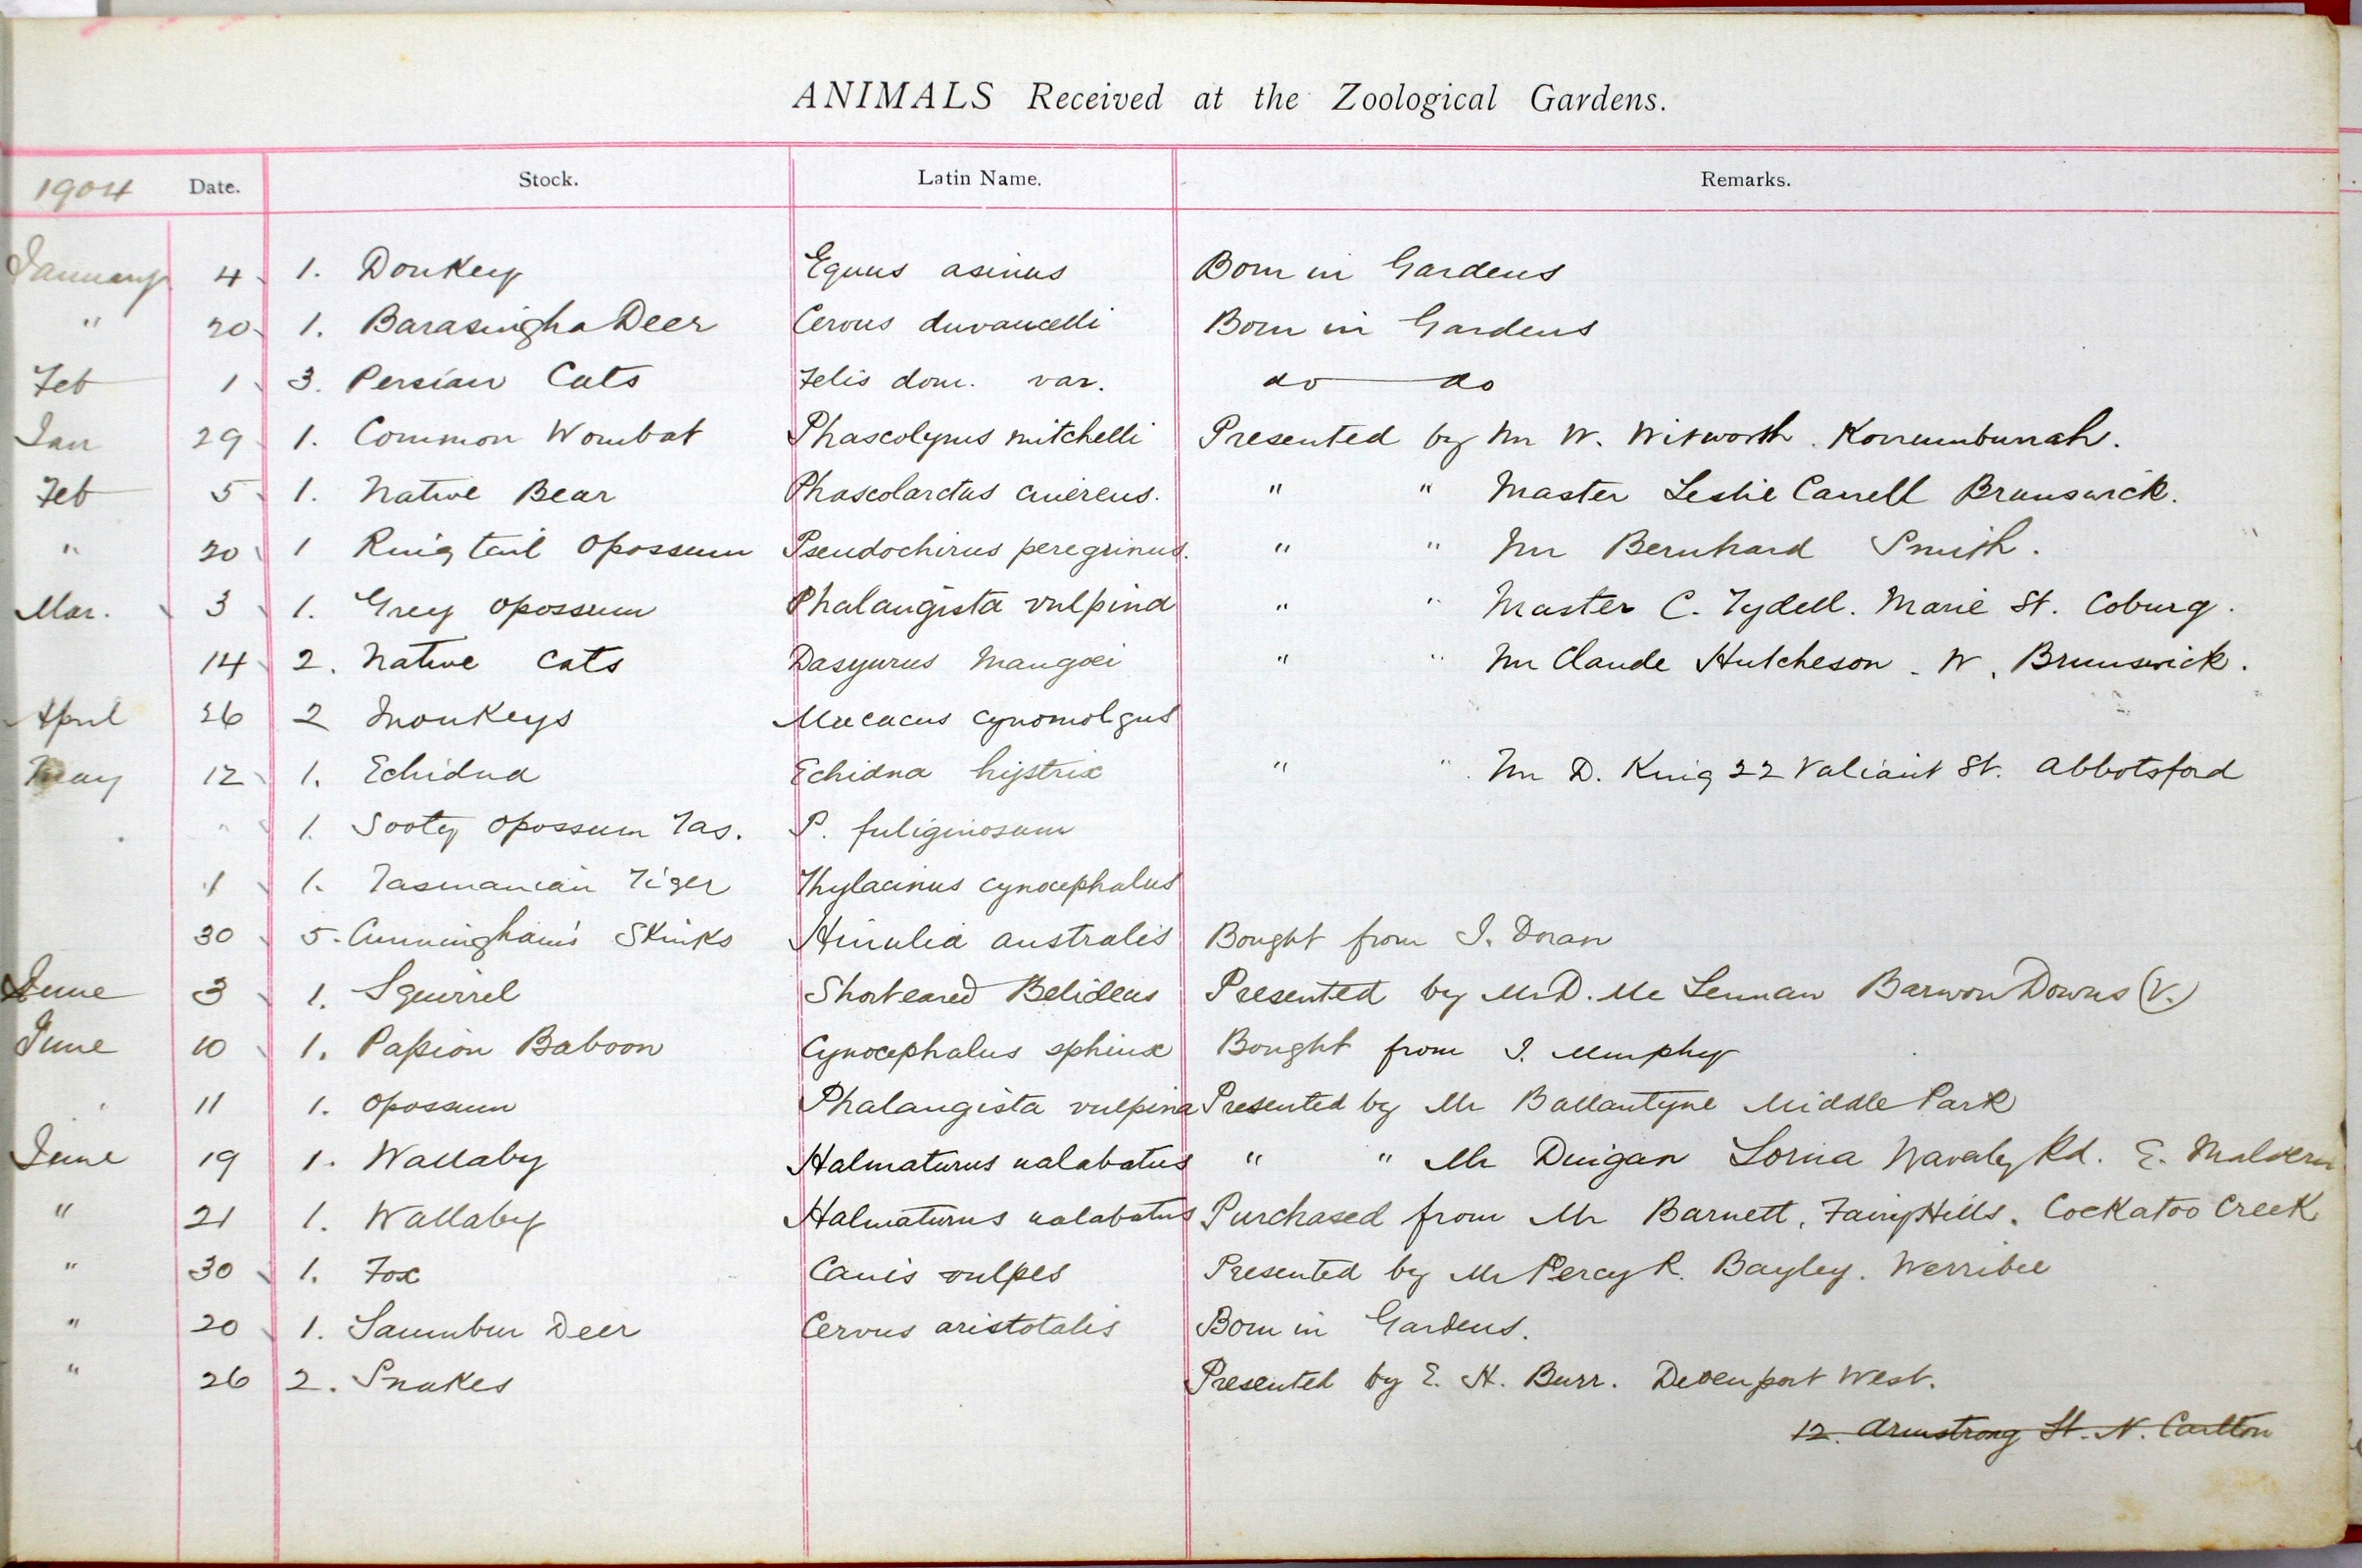 ANIMALS Received at the Zoological Gardens.
1904 Date. Stock. Latin Name. Remarks.
January 4 1. Donkey Equus asinus Born in Gardens
" 20 1. Barasingha Deer Cervus duvaucelli Born in Gardens
Feb 1 3. Persian Cats Felis dom. var. do do
Jan 29 1. Common Wombat Phascolymus mitchelli Presented by Mr W. Witworth. Korrumburrah.
Feb 5 1. Native Bear Phascolarctus cinereus. " " Master Leslie Carrell Brunswick.
" 20 1 Ringtail Opossum Pseudochirus peregrinus. " " Mr Bernhard Smith.
Mar. 3 1. Grey Opossum Phalangista vulpina " " Master C. Tydell. Marie St. Coburg.
14 2. Native Cats Dasyurus Maugei " " Mr Claude Hutcheson. W. Brunswick.
April 26 2 Monkeys Macacus cynomolgus
May 12 1. Echidna Echidna hystrix " " Mr D. King 22 Valiant St. Abbotsford
" 1. Sooty Opossum Tas. P. fuliginosum
1 1. Tasmanian Tiger Thylacinus cynocephalus
30 5. Cunningham's Skinks Hinulia australis Bought from J. Doran
June 3 1. Squirrel Shorteared Belideus Presented by Mr D. Mc Lennan Barwon Downs (V.)
June 10 1. Papion Baboon Cynocephalus sphinx Bought from J. Murphy
11 1. Opossum Phalangista vulpina Presented by Mr Ballantyne Middle Park
June 19 1. Wallaby Halmaturus ualabatus " " Mr Duigan Lorna Rd. E. Malvern
" 21 1. Wallaby Halmaturus ualabatus Purchased from Mr Barnett, Fairy Hills. Cockatoo Creek
" 30 1. Fox Canis vulpes Presented by Mr Percy R. Bayley. Werribee
" 20 1. Saumbur Deer Cervus aristotalis Born in Gardens.
" 26 2. Snakes Presented by E. H. Burr. Devenport West.
12. Armstrong St. N. Carlton